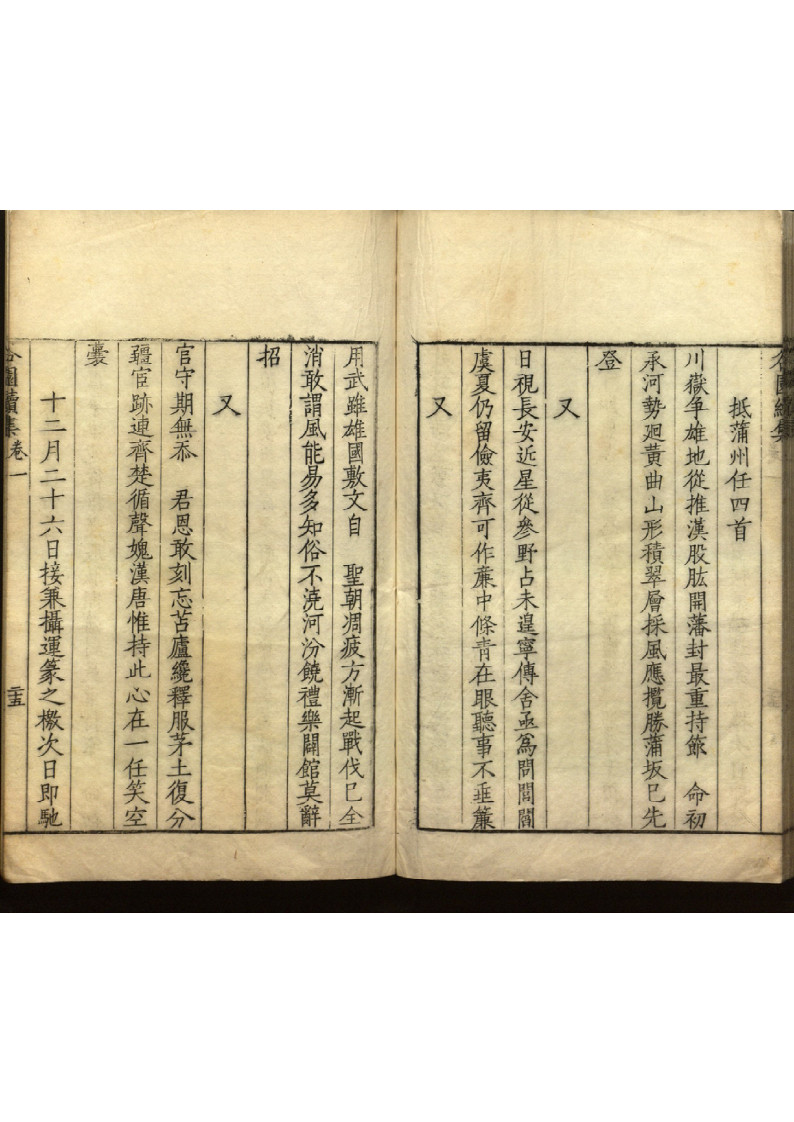 抵蒲州任四首
川嶽争雄地從推漢股肱開藩封最重持節　命初
承河勢廻黃曲山形積翠層採風應攬勝蒲坂已先
登
又
日視長安近星從參野占未遑寧傳舍亟爲問閭閻
虞夏仍留儉夷齊可作亷中條青在眼聽事不垂簾
又
用武雖雄國敷文自　聖朝凋疲方漸起戰伐已全
消敢謂風能易多知俗不澆河汾饒禮樂闢館莫辭
招
又
官守期無忝　君恩敢刻忘苫廬纔釋服茅土復分
疆宦跡連齊楚循聲媿漢唐惟持此心在一任笑空
囊
十二月二十六日接兼攝運篆之檄次日即馳
園續集　卷一　二十五